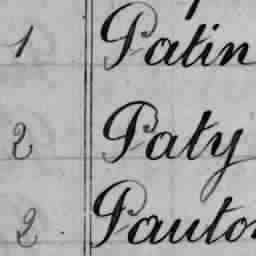 1 Patin
2 Paty
2 Pauton